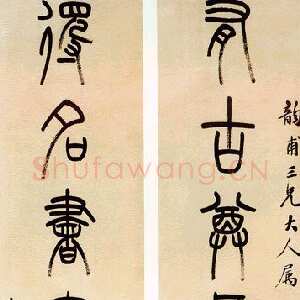 韵甫三兄大人属
有古尊
得名書
Shufawang.CN